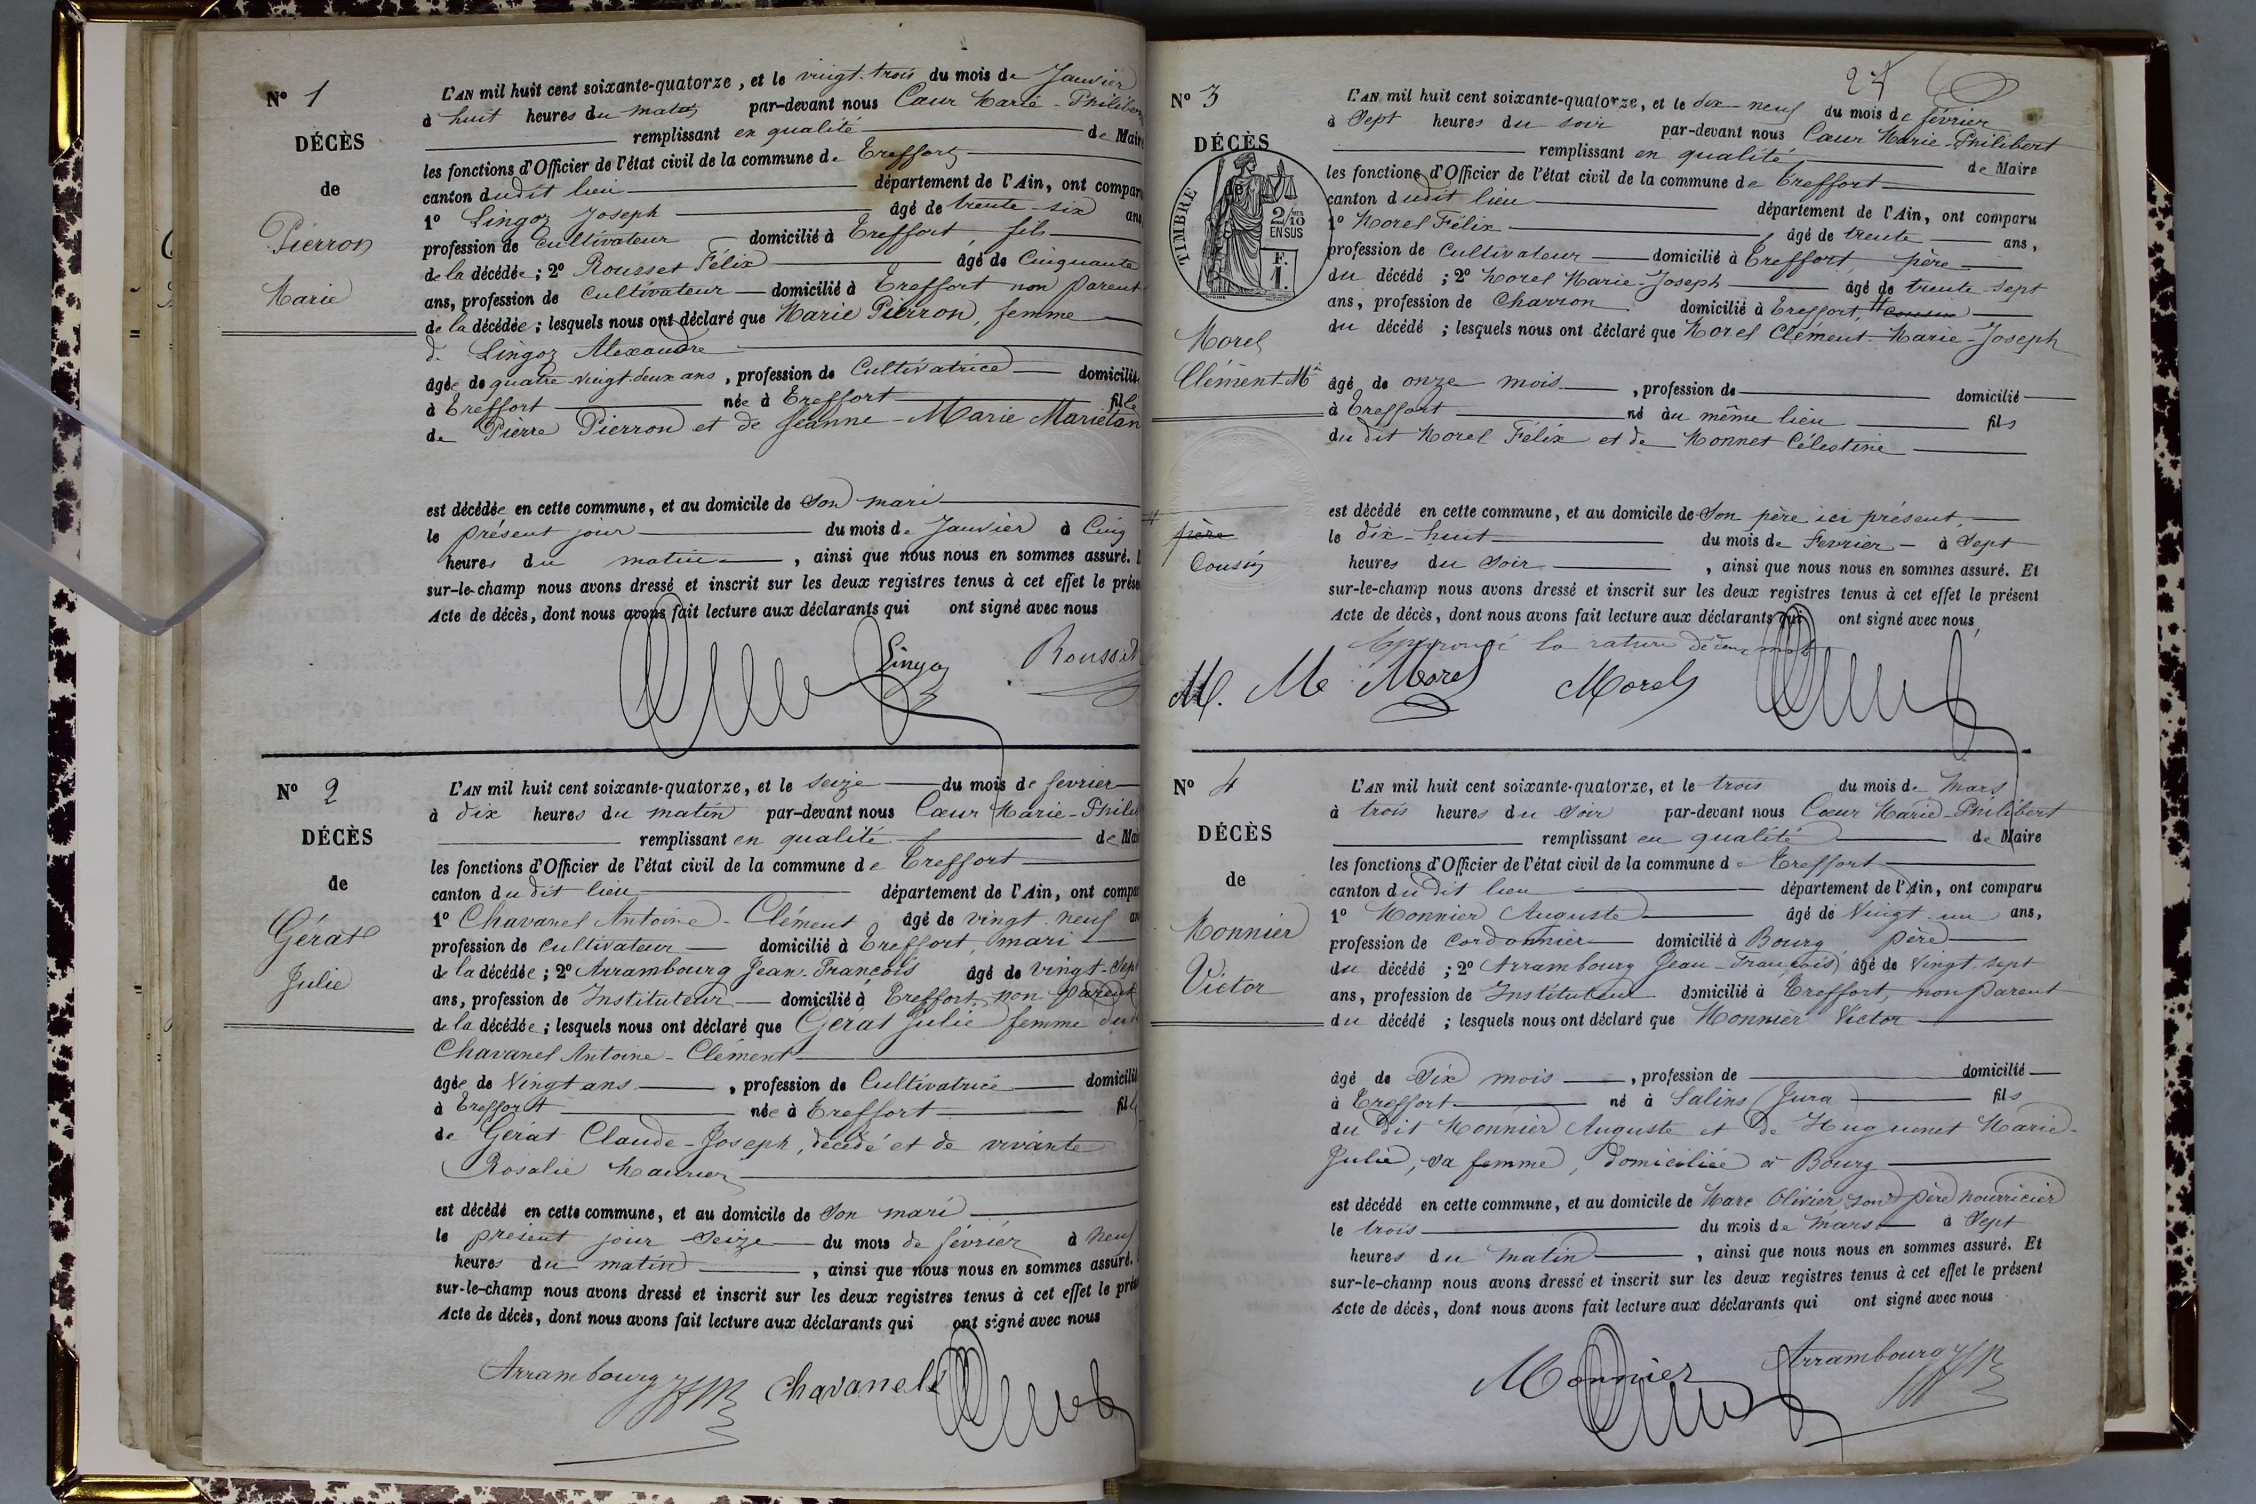 Nº 1
DÉCÈS
de
Pierron
Marie
L'AN mil huit cent soixante-quatorze, et le vingt-trois du mois de Janvier
à huit heures du matin par-devant nous Cœur Marie-Philibert
remplissant en qualité de Maire
les fonctions d'Officier de l'état civil de la commune de Treffort
canton dudit lieu département de l'Ain, ont comparu
1º Lingoz Joseph âgé de trente-six ans
profession de cultivateur domicilié à Treffort fils
de la décédée; 2º Rousset Félix âgé de Cinquante
ans, profession de cultivateur domicilié à Treffort non parent
de la décédée; lesquels nous ont déclaré que Marie Pierron, femme
de Lingoz Alexandre
âgée de quatre-vingt-deux ans, profession de Cultivatrice domicilié
à Treffort née à Treffort fille
de Pierre Pierron et de Jeanne-Marie Mariétan
est décédée en cette commune, et au domicile de son mari
le présent jour du mois de Janvier à Cinq
heures du matin, ainsi que nous nous en sommes assuré.
sur-le-champ nous avons dressé et inscrit sur les deux registres tenus à cet effet le prése
Acte de décès, dont nous avons fait lecture aux déclarants qui ont signé avec nous
Lingoz Rousset
Nº 2
DÉCÈS
de
Gérat
Julie
L'AN mil huit cent soixante-quatorze, et le seize du mois de février
à dix heures du matin par-devant nous Cœur Marie-Philib
remplissant en qualité de Mai
les fonctions d'Officier de l'état civil de la commune de Treffort
canton dudit lieu département de l'Ain, ont compar
1º Chavanel Antoine-Clément âgé de vingt-neuf an
profession de cultivateur domicilié à Treffort, mari
de la décédée; 2º Arrambourg Jean-François âgé de vingt-sept
ans, profession de Instituteur domicilié à Treffort, non parent
de la décédée; lesquels nous ont déclaré que Gérat Julie femme dud
Chavanel Antoine-Clément
âgée de Vingt ans, profession de Cultivatrice domicilié
à Treffort née à Treffort fille
de Gérat Claude-Joseph, décédé et de vivante
Rosalie Maurier
est décédé en cette commune, et au domicile de son mari
le présent jour seize du mois de février à neuf
heures du matin, ainsi que nous nous en sommes assuré.
sur-le-champ nous avons dressé et inscrit sur les deux registres tenus à cet effet le prés
Acte de décès, dont nous avons fait lecture aux déclarants qui ont signé avec nous
Arrambourg Chavanel
24
Nº 3
DÉCÈS
de
TIMBRE
2/10 EN SUS
F. 1.
Morel
Clément-Mie
L'AN mil huit cent soixante-quatorze, et le dix-neuf du mois de février
à Sept heures du soir par-devant nous Cœur Marie-Philibert
remplissant en qualité de Maire
les fonctions d'Officier de l'état civil de la commune de Treffort
canton dudit lieu département de l'Ain, ont comparu
1º Morel Félix âgé de trente ans,
profession de Cultivateur domicilié à Treffort père
du décédé; 2º Morel Marie-Joseph âgé de trente-sept
ans, profession de Charron domicilié à Treffort, # cousin
du décédé; lesquels nous ont déclaré que Morel Clément-Marie-Joseph
âgé de onze mois, profession de domicilié
à Treffort né au même lieu fils
dudit Morel Félix et de Monnet Célestine
est décédé en cette commune, et au domicile de Son père ici présent,
le dix-huit du mois de Février à Sept
heures du Soir, ainsi que nous nous en sommes assuré. Et
sur-le-champ nous avons dressé et inscrit sur les deux registres tenus à cet effet le présent
Acte de décès, dont nous avons fait lecture aux déclarants qui ont signé avec nous,
# père
Cousin
Approuvé la rature de deux mots
M. Me Morel Morel
Nº 4
DÉCÈS
de
Monnier
Victor
L'AN mil huit cent soixante-quatorze, et le trois du mois de Mars
à trois heures du Soir par-devant nous Cœur Marie-Philibert
remplissant en qualité de Maire
les fonctions d'Officier de l'état civil de la commune de Treffort
canton dudit lieu département de l'Ain, ont comparu
1º Monnier Auguste âgé de Vingt-un ans,
profession de cordonnier domicilié à Bourg père
du décédé; 2º Arrambourg Jean-François âgé de Vingt-sept
ans, profession de Instituteur domicilié à Treffort, non parent
du décédé; lesquels nous ont déclaré que Monnier Victor
âgé de Six mois, profession de domicilié
à Treffort né à Salins (Jura fils
du dit Monnier Auguste et de Huguenet Marie-
Julie, sa femme, domiciliée à Bourg
est décédé en cette commune, et au domicile de Marc Olivier, son père nourricier
le trois du mois de mars à Sept
heures du matin, ainsi que nous nous en sommes assuré. Et
sur-le-champ nous avons dressé et inscrit sur les deux registres tenus à cet effet le présent
Acte de décès, dont nous avons fait lecture aux déclarants qui ont signé avec nous
Monnier Arrambourg